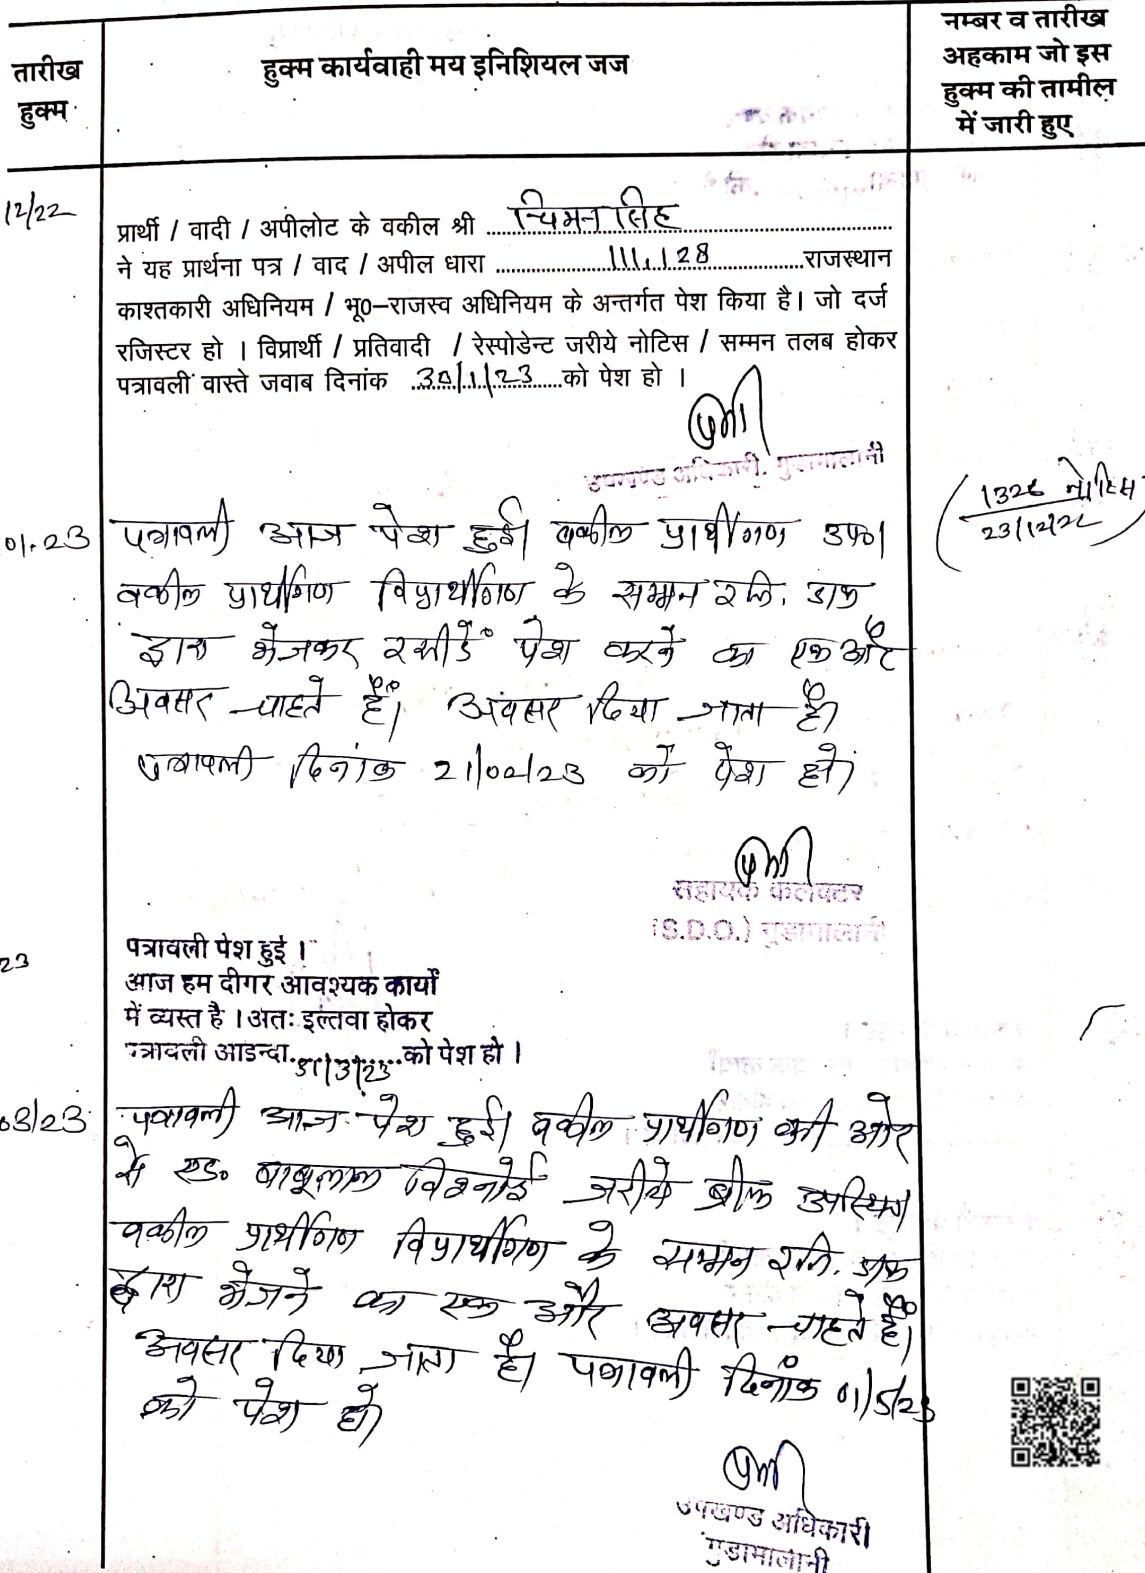 तारीख
हुक्म
हुक्म कार्यवाही मय इनिशियल जज
नम्बर व तारीख
अहकाम जो इस
हुक्म की तामील
में जारी हुए
12/22
प्रार्थी / वादी / अपीलोट के वकील श्री चिमनसिंह
ने यह प्रार्थना पत्र / वाद / अपील धारा 111,128 राजस्थान
काश्तकारी अधिनियम / भू०-राजस्व अधिनियम के अन्तर्गत पेश किया है। जो दर्ज
रजिस्टर हो । विप्रार्थी / प्रतिवादी / रेस्पोडेन्ट जरीये नोटिस / सम्मन तलब होकर
पत्रावली वास्ते जवाब दिनांक 30/1/23 को पेश हो ।
उपखण्ड अधिकारी, गुडामालानी
1326 नोटिस
23/12/22
01.23
पत्रावली आज पेश हुई। वकील प्रार्थीगण उप०।
वकील प्रार्थीगण विप्रार्थीगण के सम्मन रजि. डाक
द्वारा भेजकर रसीदें पेश करने का एक और
अवसर चाहते हैं। अवसर दिया जाता है।
पत्रावली दिनांक 21/02/23 को पेश हो।
सहायक कलेक्टर
(S.D.O.) गुडामालानी
23
पत्रावली पेश हुई ।
आज हम दीगर आवश्यक कार्यो
में व्यस्त है । अतः इल्तवा होकर
पत्रावली आइन्दा 31/3/23 को पेश हो ।
03/23
पत्रावली आज पेश हुई। वकील प्रार्थीगण की ओर
से एड० बाबूलाल विश्नोई जरीये ब्रीफ उपस्थित।
वकील प्रार्थीगण विप्रार्थीगण के सम्मन रजि. डाक
द्वारा भेजने का एक और अवसर चाहते हैं।
अवसर दिया जाता है। पत्रावली दिनांक 01/5/23
को पेश हो।
उपखण्ड अधिकारी
गुडामालानी